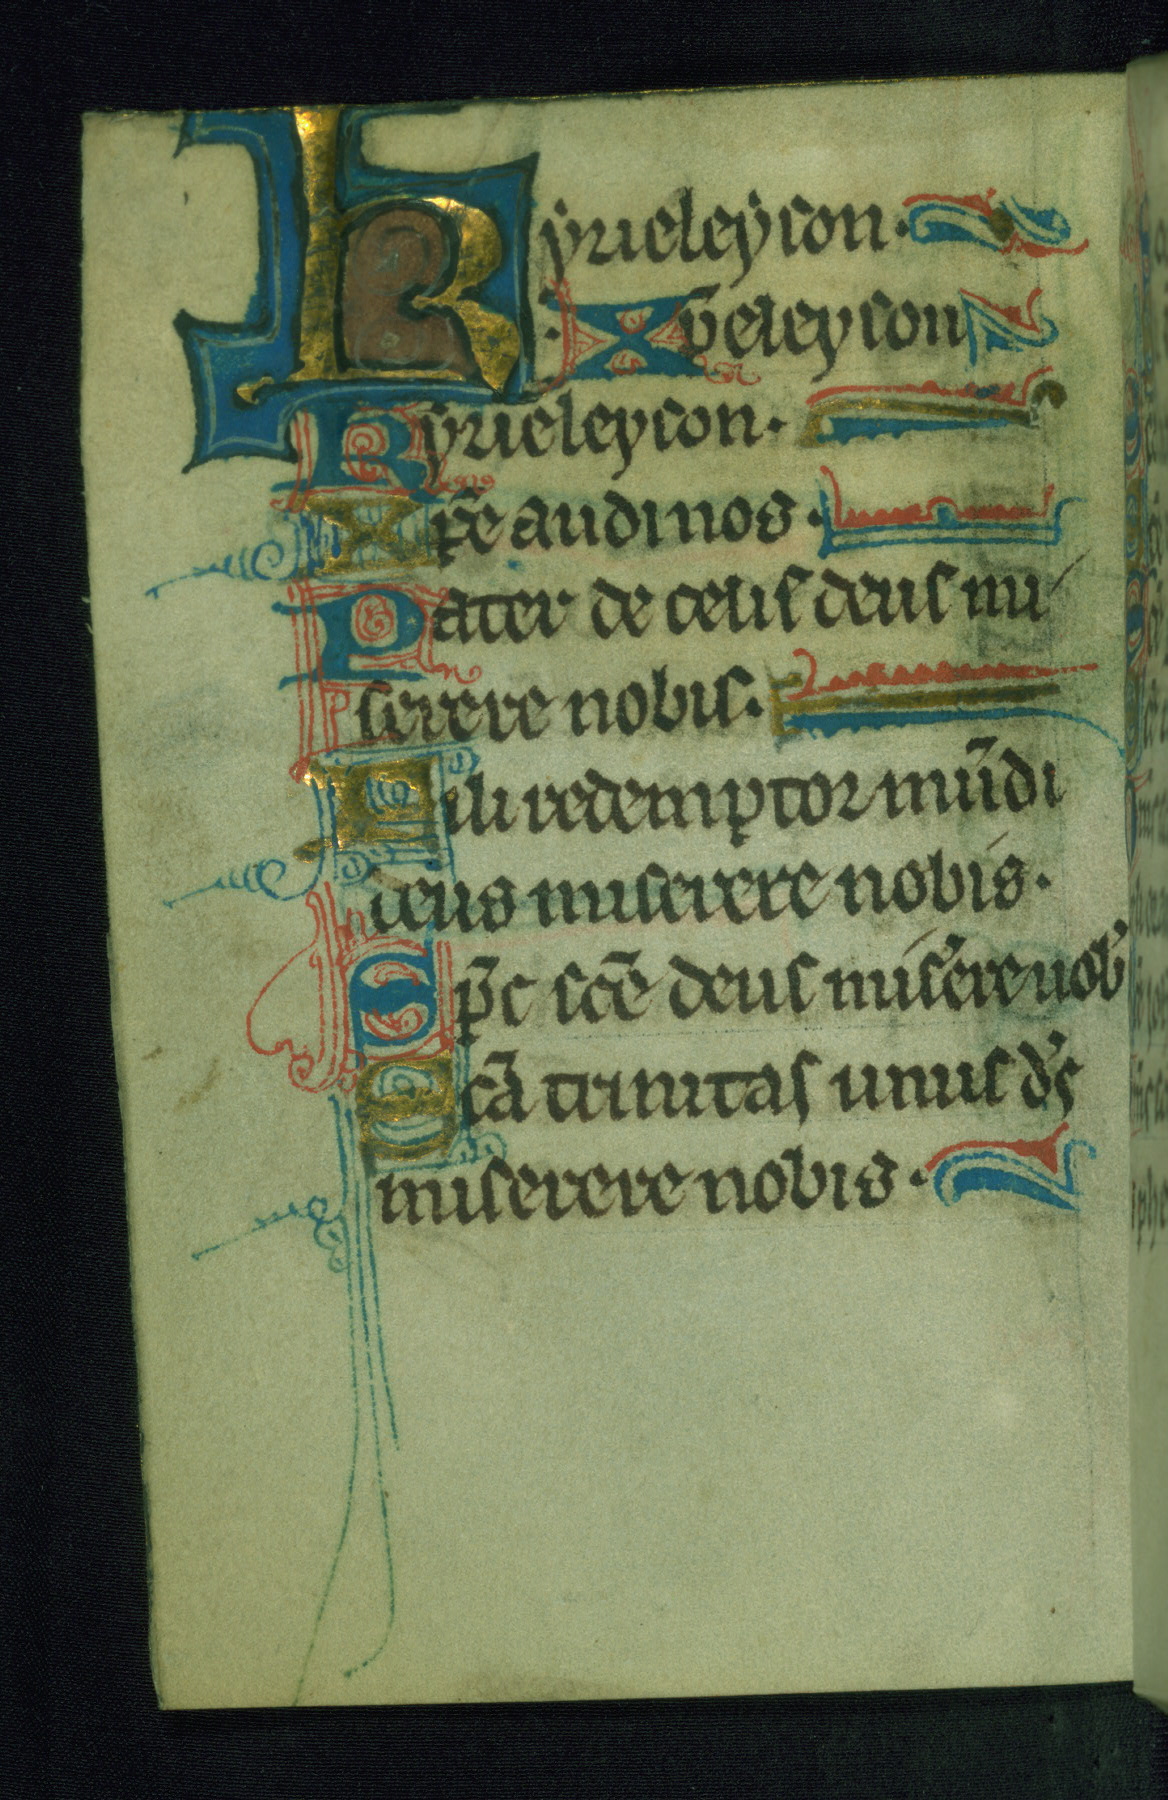 Kyrieleyson.
Xp̄eleyson
Kyrieleyson.
Xp̄e audi nos.
Pater de celis deus mi
serere nobis.
Fili redemptor mūdi
deus miserere nobis.
Sp̄c sc̄e deus mis̾ere nob̾
Sc̄a trinitas unus d̾s
miserere nobis.